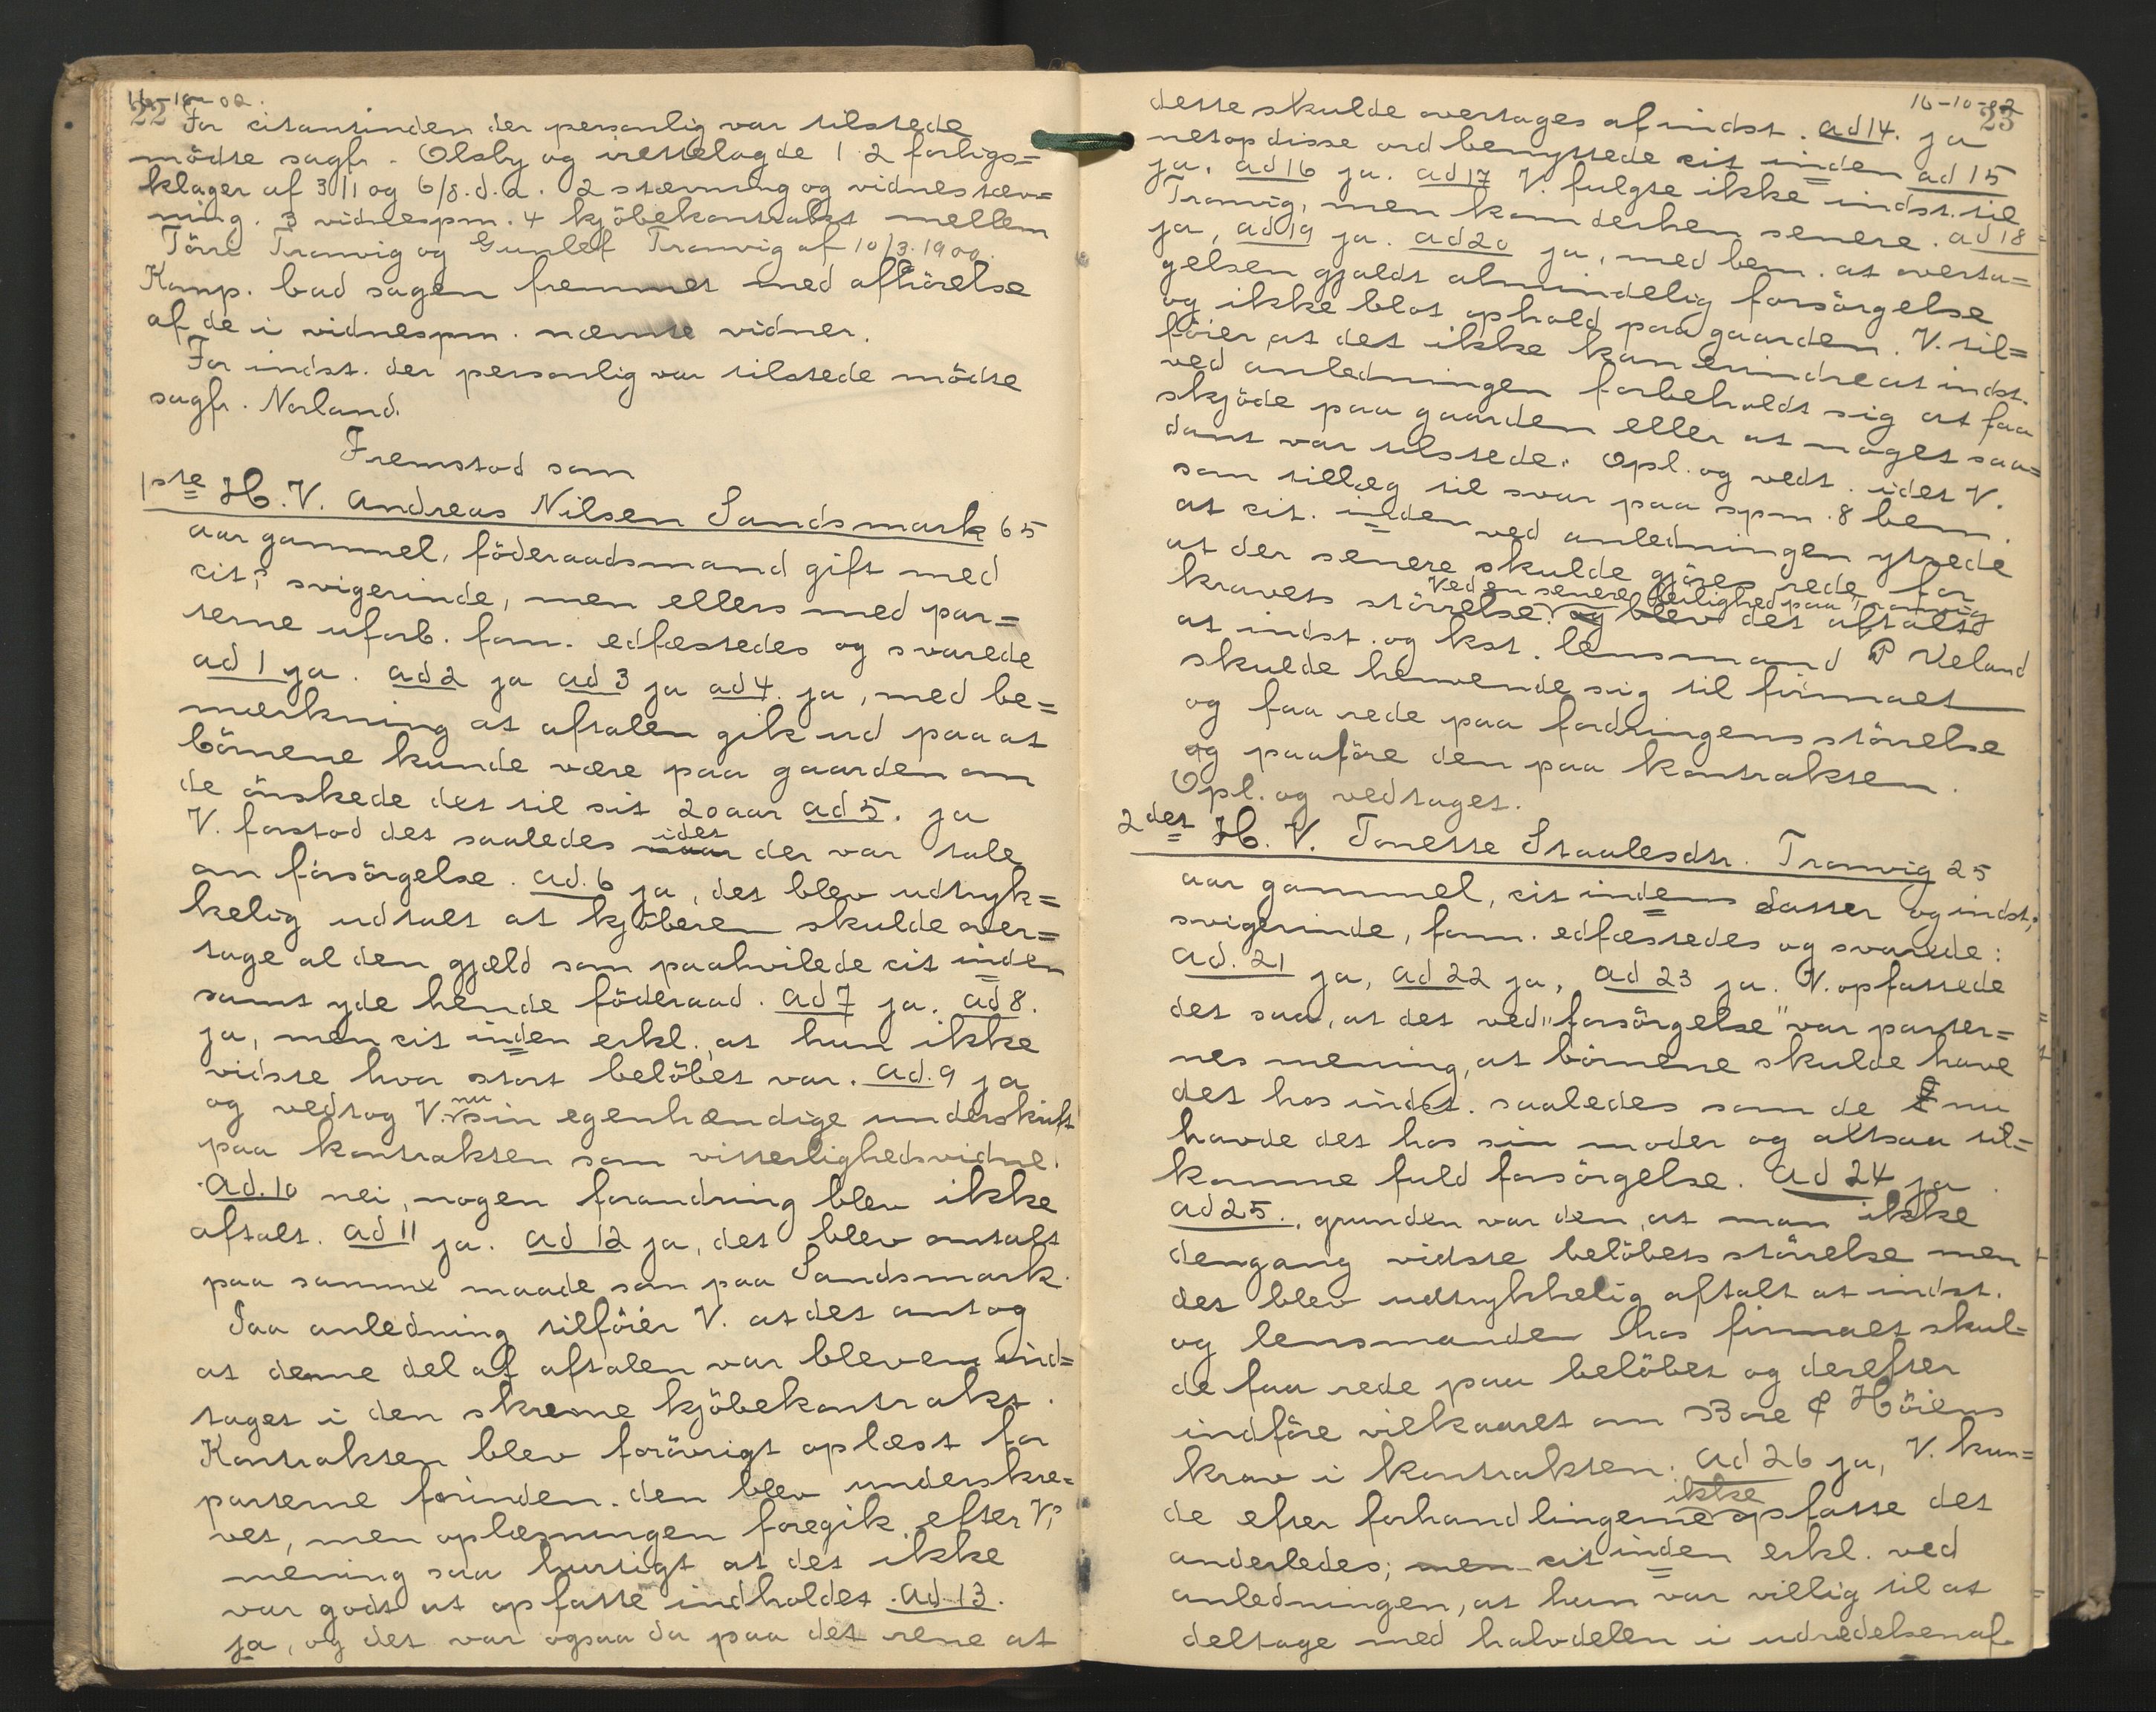 16-10-02.
22
For citantinden der personlig var tilstede
mödte sagf. Olsby og irettelagde 1 2 forligs=
klager af 3/1 og 6/8. d. a. 2 stævning og vidnestæv=
ning. 3 vidnespm. 4 kjöbekontrakt mellem
Töre Tranvig og Gunlef Tranvig af 10/3. 1900.
Komp. bad sagen fremmet med afhörelse
af de i vidnespm. nævnte vidner.
For indst. der personlig var tilstede mödte
sagf. Norland.
Fremstod som
1ste H. V. Andreas Nilsen Sandsmark 65
aar gammel, föderaadsmand gift med
cit.s svigerinde, men ellers med par=
terne uforb. fom. edfæstedes og svarede
ad 1 ja. ad 2 ja ad 3 ja ad 4. ja, med be=
mærkning at aftalen gik ud paa at
börnene kunde være paa gaarden om
de önskede det til sit 20 aar ad 5. ja
V. forstod det saaledes naar idet der var tale
om försörgelse. ad. 6 ja, det blev udtryk=
kelig udtalt at kjöberen skulde over=
tage al den gjæld som paahvilede cit inden
samt yde hende föderaad. ad 7 ja. ad 8.
ja, men cit inden erkl., at hun ikke
vidste hvor stort belöbet var. ad. 9 ja
og vedtog V. nu sin egenhændige underskrift
paa kontrakten som vitterlighedsvidne.
ad. 10 nei, nogen forandring blev ikke
aftalt. ad 11 ja. ad 12 ja, det blev omtalt
paa samme maade som paa Sandsmark.
Paa anledning tilföier V. at det antog
at denne del af aftalen var bleven ind=
taget i den skrevne kjöbekontrakt.
Kontrakten blev forövrigt oplæst for
parterne forinden. den blev underskre=
vet, men oplæsningen foregik efter V.s
mening saa hurtigt at det ikke
var godt at opfatte indholdet. ad. 13.
ja, og det var ogsaa da paa det rene at
16-10-02
23
dette skulde overtages af indst. ad 14. ja
netop disse ord benyttede cit inden ad 15
ja. ad 16 ja. ad 17 V. fulgte ikke indst. til
Tranvig, men kom derhen senere. ad 18
ja, ad 19 ja. ad 20 ja, med bem. at overta=
gelsen gjaldt almindelig forsörgelse
og ikke blot ophold paa gaarden. V. til=
föier, at det ikke kan erindre at indst.
ved anledningen forbeholdt sig at faa
skjöde paa gaarden eller at noget saa=
dant var tilstede. Opl. og vedt. idet V.
som tillæg til svar paa spm. 8 bem.
at cit. inden ved anledningen ytrede
at der senere skulde gjöres rede for
Ved en senere leilighed paa Tranvig
kravets störrelse. og blev det aftalt
at indst. og kst. lensmand P Veland
skulde henvende sig til firmaet
og faa rede paa fordringens störrelse
og paaföre den paa kontrakten.
Opl. og vedtaget.
2det H. V. Tonette Staalesdtr. Tranvig 25
aar gammel, cit indens datter og indst.s
svigerinde, fom. edfæstedes og svarede:
ad. 21 ja, ad 22 ja, ad 23 ja. V. opfattede
det saa, at det ved "forsörgelse" var parter=
nes mening, at börnene skulde have
det hos indst. saaledes som de nu
havde det hos sin moder og altsaa til=
komme fuld forsörgelse. ad 24 ja.
ad 25., grunden var den, at man ikke
dengang vidste belöbets störelse men
det blev udtrykkelig aftalt at indst.
og lensmanden hos firmaet skul=
de faa rede paa belöbet og derefter
indföre vilkaaret om Bore & Höiens
krav i kontrakten. ad 26 ja, V. kun=
de efter forhandlingerne ikke opfatte det
anderledes; men cit inden erkl. ved
anledningen, at hun var villig til at
deltage med halvdelen i udredelsen af